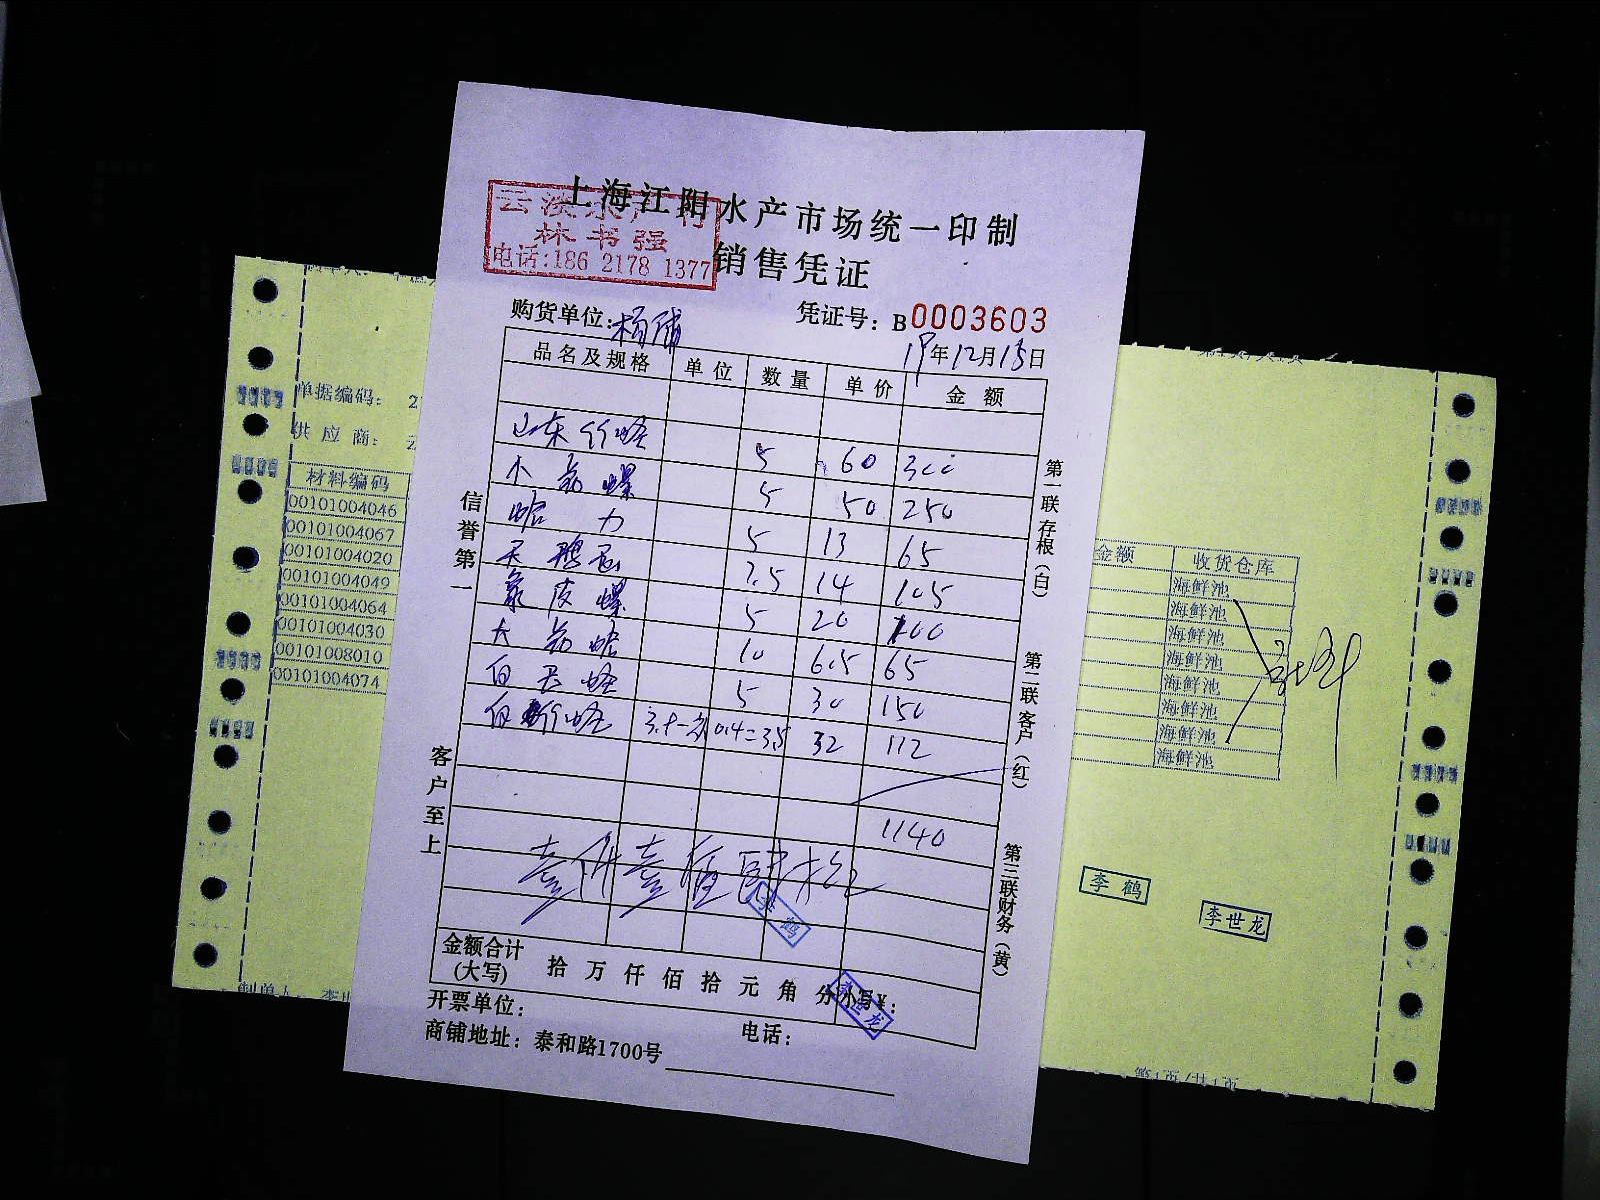 上海江阳水产市场统一印制
林书强
电话:186 2178 1377
销售凭证
购货单位:杨浦
凭证号: B0003603
19年12月15日
品名及规格 单位 数量 单价 金额
山东竹蛏 5 60 300
5 50 250
5 13 65
7.5 14 105
象皮螺 5 20 100
10 6.5 65
5 30 150
0.4=3.5 32 112
1140
金额合计(大写) 拾 万 仟 佰 拾 元 角 分 小写¥:
开票单位:
电话:
商铺地址: 泰和路1700号
信誉第一
客户至上
第一联存根(白)
第二联客户(红)
第三联财务(黄)
李鹤
李世龙
单据编码: 2
供应商:
材料编码
00101004046
00101004067
00101004020
00101004049
00101004064
00101004030
00101008010
00101004074
金额 收货仓库
海鲜池
海鲜池
海鲜池
海鲜池
海鲜池
海鲜池
海鲜池
海鲜池
李鹤
李世龙
第1页/共1页